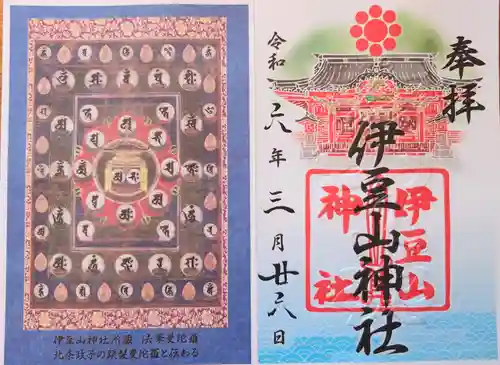 奉拝
伊豆山神社
伊豆山
神社
令和六年三月廿六日
伊豆山神社所蔵 法華曼陀羅
北条政子の頭髪曼陀羅と伝わる